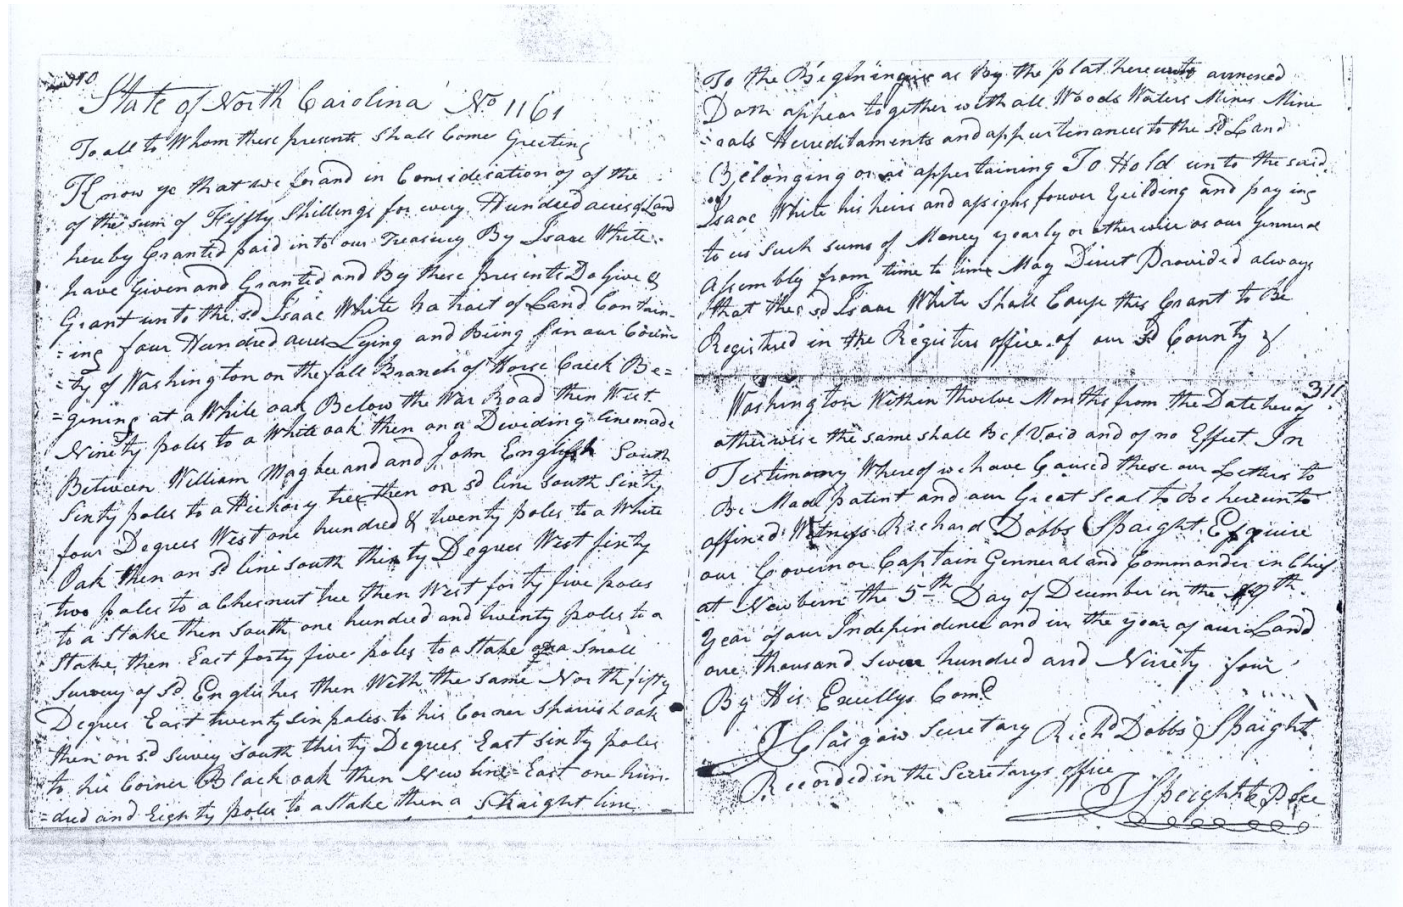 310
State of North Carolina No 1161
To all to Whom these presents Shall Come Greeting
Know ye that we for and in Consideration of of the
of the sum of Fiffty Shillings for every Hundred acres of Land
hereby Granted paid into our Treasury By Isaac White
have Given and Granted and By these presents Do Give &
Grant unto the sd Isaac White a tract of Land Contain-
=ing four Hundred acres Lying and Being in our Coun
=ty of Washington on the fall Branch of Horse Creek Be=
=gining at a White oak Below the War Road then West
Ninety poles to a White oak then on a Dividing line made
Between William Magbee and and John English South
Sixty poles to a Hickory tree then on sd line South Sixty
four Degrees West one hundred & twenty poles to a White
Oak then on sd line South thirty Degrees West sixty
two poles to a Chesnut tree then West forty five poles
to a Stake then South one hundred and twenty poles to a
Stake then East forty five poles to a Stake on a Small
Survey of sd Englishes then With the same North fifty
Degrees East twenty six poles to his Corner Spanish oak
then on sd Survey South thirty Degrees East sixty poles
to his Corner Black oak then New line East one hun-
=dred and Eighty poles to a Stake then a Straight line
To the Begining as By the plat hereunto annexed
Doth appear together with all Woods Waters Mines Mine
=rals Herreditaments and appurtenances to the sd Land
Belonging or appertaining To Hold unto the said
Isaac White his heirs and assigns forever Yeilding and paying
to us Such sums of Money yearly or otherwise as our Genneral
Assembly from time to time May Direct Provided always
that the sd Isaac White Shall Cause this Grant to Be
Registred in the Registers office of our sd County of
311
Washington Within twelve Months from the Date hereof
otherwise the same shall Be Void and of no Effect In
Testimony Whereof we have Caused these our Letters to
Be Made patent and our Great Seal to Be hereunto
affixed Witness Richard Dobbs Spaight Esquire
our Governor Captain Genneral and Commander in Chief
at Newbern the 5th Day of December in the 19th
Year of our Independence and in the year of our Land
one thousand seven hundred and Ninety four
By His Excellys Comd
J Glasgow Secretary Richd Dobbs Spaight
Recorded in the Secretarys office